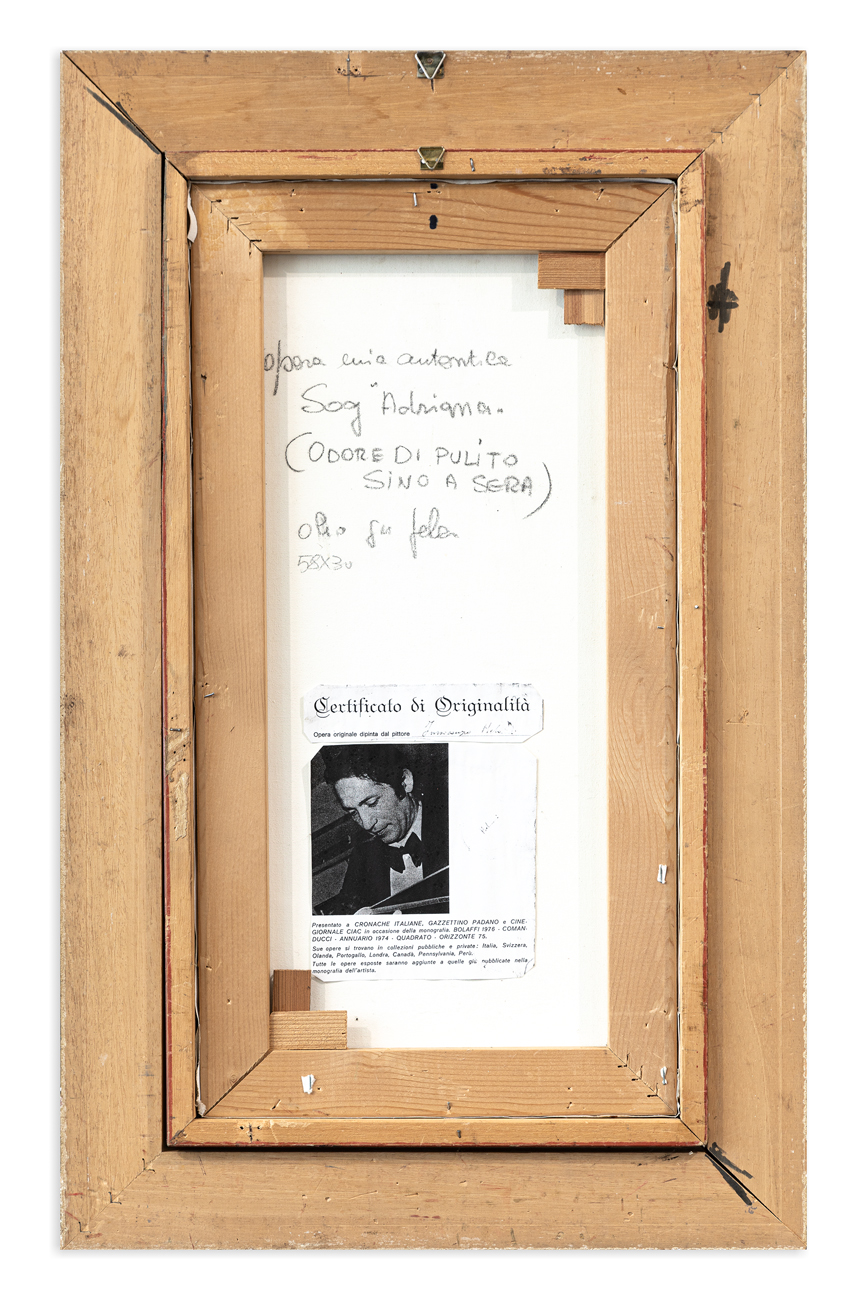 opera mia autentica
Sog "Adriana.
(ODORE DI PULITO
SINO A SERA)
olio su tela
58X30
Certificato di Originalità
Opera originale dipinta dal pittore
Presentato a CRONACHE ITALIANE, GAZZETTINO PADANO e CINE-
GIORNALE CIAC in occasione della monografia. BOLAFFI 1976 - COMAN-
DUCCI - ANNUARIO 1974 - QUADRATO - ORIZZONTE 75.
Sue opere si trovano in collezioni pubbliche e private: Italia, Svizzera,
Olanda, Portogallo, Londra, Canadà, Pennsylvania, Perù.
Tutte le opere esposte saranno aggiunte a quelle già pubblicate nella
monografia dell'artista.